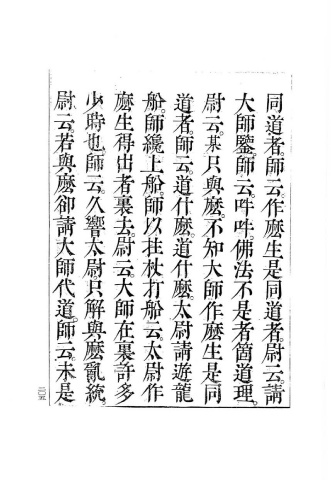 同道者。師云。作麼生是同道者。尉云。請
大師鑒。師云。吽吽。佛法不是者箇道理。
尉云。某只與麼。不知大師作麼生是同
道者。師云。道什麼道什麼。太尉請遊龍
船。師纔上船。師以拄杖打船云。太尉作
麼生得出者裏去。尉云。大師在裏許多
少時也。師云。久響太尉。只解與麼亂統。
尉云。若與麼卻請大師代道。師云。未是
二〇五